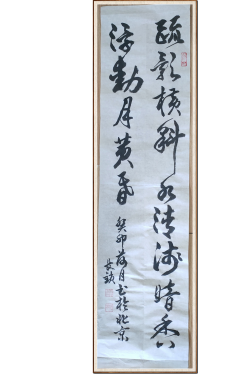 疏影横斜水清浅暗香
浮动月黄昏
癸卯荷月书于北京